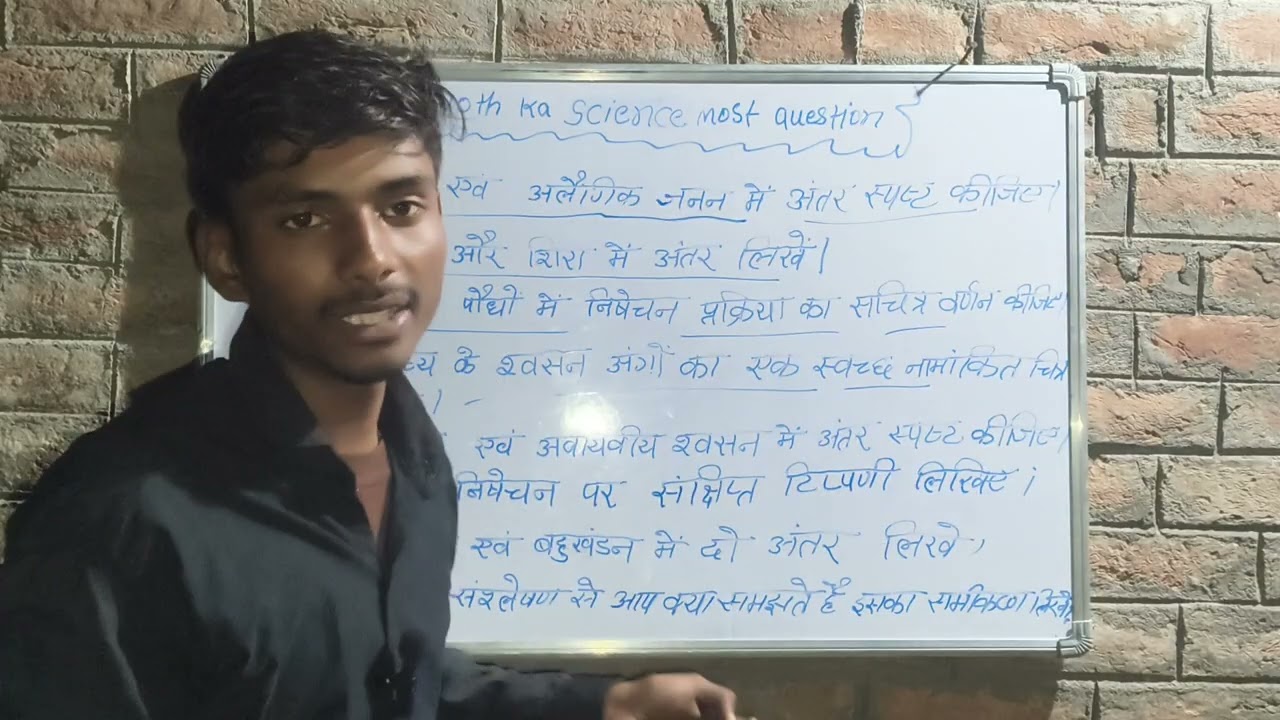 oth ka science most question
एवं अलैंगिक जनन में अंतर स्पष्ट कीजिए।
और शिरा में अंतर लिखें।
पौधों में निषेचन प्रक्रिया का सचित्र वर्णन कीजिए।
के श्वसन अंगों का एक स्वच्छ नामांकित चित्र
एवं अवायवीय श्वसन में अंतर स्पष्ट कीजिए।
निषेचन पर संक्षिप्त टिप्पणी लिखिए।
एवं बहुखंडन में दो अंतर लिखे,
संश्लेषण से आप क्या समझते हैं इसका